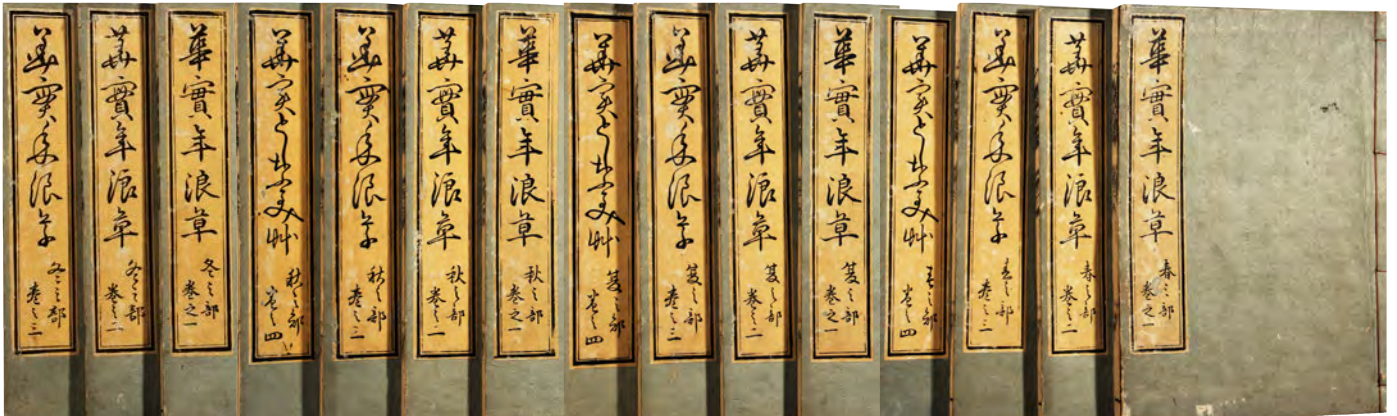 華實年浪草
春之部
巻之一
華實年浪草
春之部
巻之二
華實年浪草
春之部
巻之三
華実としなみ艸
春之部
巻之四
華實年浪草
夏之部
巻之一
華實年浪草
夏之部
巻之二
華實年浪草
夏之部
巻之三
華実としなみ艸
夏之部
巻之四
華實年浪草
秋之部
巻之一
華實年浪草
秋之部
巻之二
華實年浪草
秋之部
巻之三
華実としなみ艸
秋之部
巻之四
華實年浪草
冬之部
巻之一
華實年浪草
冬之部
巻之二
華實年浪草
冬之部
巻之三